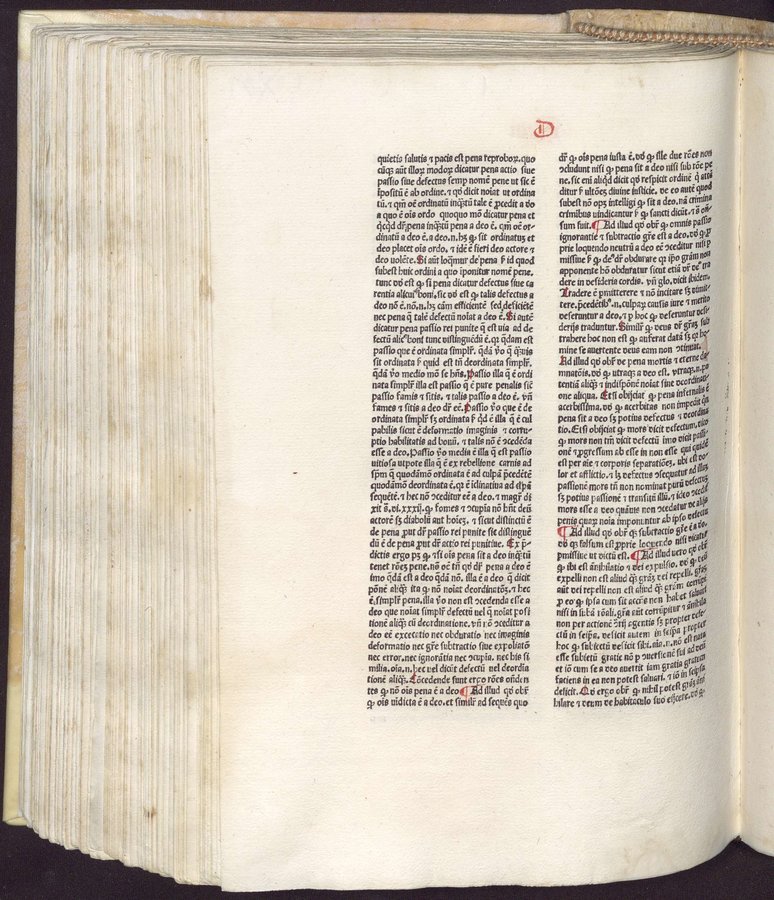 D
quietis salutis ⁊ pacis est pena reproboꝝ. quo
cūqꝫ aūt illoꝝ modoꝝ dicatur pena actio siue
passio siue defectus semp nomē pene ut sic ē
īpositū ē ab ordine. ⁊ qď dicit noīat ut ordina
tū. ꝗm oē ordinatū inꝗ̄tū tale ē ꝓcedit a ꝟo
a quo ē oīs ordo
dinatū a deo ē. a deo. n. hꝫ ꝙ sit ordinatuꝫ et
deo placet oīa ordo. ⁊ idē ē fieri deo actore ⁊
deo volēte. Si aūt loꝗmur de pena ꝓ id quod
subest huic ordini a quo īponitur nomē pene.
tunc ꝟo est ꝙ si pena dicatur defectus siue ca
rentia alicuiꝰ boni. sic ꝟo est ꝙ talis defectus a
deo nō ē. nō. n. hꝫ cām efficientē sed deficiētē
nec pena ꝗ̄ talē defectū noīat a deo ē. Si autē
dicatur pena passio rei punite ꝗ est uia ad de
fectū alicꝰ boni tunc distinguēdū ē. ꝗꝛ ꝗdam est
passio que ē ordinata simplr̄. ꝗdā ꝟo ꝗ ꝗꝫuis
sit ordinata ẜ quid est tn̄ deordinata simplr̄.
ꝗdā ꝟo medio mō se hn̄s. Passio illa ꝗ ē ordi
nata simplr̄ illa est passio ꝗ ē pure penalis sic̄
passio famis ⁊ sitis. ⁊ talis passio a deo ē. vn̄
fames ⁊ sitis a deo dr̄ eē. Passio ꝟo que ē de
ordinata simplr̄ sꝫ ordinata ẜ ꝗd ē illa ꝗ ē cul
pabilis sicut ē deformatio imaginis ⁊ corru
ptio habilitatis ad bonū. ⁊ talis nō ē ↄcedēda
esse a deo. Passio ꝟo media ē illa ꝗ est passio
vitiosa utpote illa ꝗ ē ex rebellione carnis ad
spm̄ ꝗ quodāmō ordinata ē ad culpā p̄cedētē
quodāmō deordinata ē. ꝗꝛ ē īclinatiua ad cl̓pā
sequētē. ⁊ hec nō ↄceditur eē a deo. ⁊ magr̄ di
xit
actorē sꝫ diaboli aut hoīeꝫ. ⁊ sicut distincti ē
de pena ꝓut dr̄ passio rei punite sic distinguē
dū ē de pena ꝓut dr̄ actio rei punitiue. Ex p̄
dictis ergo pꝫ ꝙ. si oīs pena sit a deo inꝗ̄tū
tenet rōeꝫ pene. nō oē tn̄ qď dr̄ pena a deo ē
imo ꝗdā est a deo ꝗdā nō. illa ē a deo ꝗ dicit
pōnē aliꝗꝫ ita ꝙ nō noīat deordinatōꝫ. ⁊ hec
ē. simplr̄ pena. illa ꝟo non est ↄcedenda esse a
deo que noīat simplr̄ defectū uel ꝗ noīat posi
tionē aliꝗꝫ cū deordinatione. vn̄ nō ↄceditur a
deo eē excecatio nec obduratio nec imaginis
deformatio nec gr̄e subtractio siue expoliatō
nec error. nec ignorātia nec ↄcupīa. nec his si
milia. oīa. n. hec uel dicūt defectū uel deordia
tionē aliꝗꝫ. Ↄcedende sunt ergo rōes oñdēn
tes ꝙ nō oīs pena ē a deo. Ad illud qď obr̄
ꝙ oīs uīdicta ē a deo. et simil̓r ad sequēs quo
dr̄ ꝙ. oīs pena iusta ē. ꝟo ꝙ ille due rōes non
ↄcludunt nisi ꝙ pena sit a deo nisi sub rōe pe
ne. sic eni aliꝗd dicit qď respicit ordinē
ditur ẜ ultōeꝫ diuine iusticie. ꝟe eo autē quod
subest nō opꝫ intelligi ꝙ sit a deo. nā crimina
crimībus uindicantur ẜ ꝙ sancti dicūt. ⁊ tn̄
sum fuit. Ad illud qď obr̄ ꝙ omnis passio
ignorantie ⁊ subtractio gr̄e est a deo. ꝟo ꝙ ꝓ
prie loquendo neutrū a deo eē ↄceditur nisi ꝑ
missiue ẜ ꝙ deꝰ dr̄ obdurare ꝗꝛ ip̄o grām non
apponente hō obduratur sicut etiā dr̄ deꝰ tra
dere in desideria cordis. vn̄ glo. vicit ibidem.
Tradere ē ꝑmitterere ⁊ nō incitare sꝫ dimit
tere. p̄cedētibꝰ. n. culpaꝝ causis iure ⁊ merito
deseruntur a deo. ⁊ ꝑ hoc ꝙ deseruntur desi
derijs traduntur. Simil̓r ꝙ deus dr̄ grāꝫ sub
trahere hoc non est ꝙ auferat datā sꝫ ꝗꝛ ho
mine se auertente deus eam non ↄtinuat.
Ad illud qď obr̄ de pena mortis ⁊ eterne dā
mnatōis. ꝟo ꝙ utraqꝫ a deo est. utraqꝫ. n. po
tentiā aliꝗꝫ ⁊ indisponē noīat siue deordinati
one aliqua. Et si obijciat ꝙ pena infernalis ē
acerbissima. ꝟo ꝙ acerbitas non impedit
pena sit a deo sꝫ potius defectus ⁊ deordina
tio. Et si obijciat ꝙ mors vicit defectum. dico
ꝙ mors non tm̄ vicit defectū imo vicit passi
onē ⁊ ꝓgressum ab esse in non esse
est per aīe ⁊ corporis separationēꝫ. ubi est do
lor et afflictio. ⁊ lꝫ defectus sequatur ad illaꝫ
passionē mors tn̄ non nominat purū defectuꝫ
sꝫ potius passionē ⁊ transitū illū. ⁊ ideo ↄcedit
mors esse a deo quāuis non ↄcedatur de alijs
penis quaꝝ noīa imponuntur ab ipso defectu
Ad illud qď obr̄ ꝙ subtractio gr̄e ē a deo.
ꝟo ꝙ falsum est ꝓprie loquendo nisi vicatur
ꝑmissiue ut victū est. Ad illud uero qď obr̄
ꝙ ibi est anihilatio ⁊ rei expulsio. ꝟo ꝙ
expelli non est aliud ꝗꝫ grāꝫ dei repelli.
aūt dei repelli non est aliud ꝗꝫ grām corrūpi
ꝑ eo ꝙ. ip̄sa cum sit accn̄s non habet saluari
nisi in suba rōali. gr̄a aūt corrūpitur ⁊ anihila
non per actionē ↄ̄rij agentis sꝫ propter defe
ctū in seip̄a. deficit autem in seip̄a propter
hoc ꝙ subiectū deficit sibi. aīa. n. nō est nata
esse subiectū gratie nō ꝑ ↄuersionē sui ad deū
et iō cum se a deo auertit iam gratia gratum
faciens in ea non potest saluari. ⁊ iō in seip̄sa
deficit. Qď ergo obr̄ ꝙ nihil potest grāꝫ ani
hilare ⁊ deum de habitaculo suo eijcere. ꝟo ꝙ